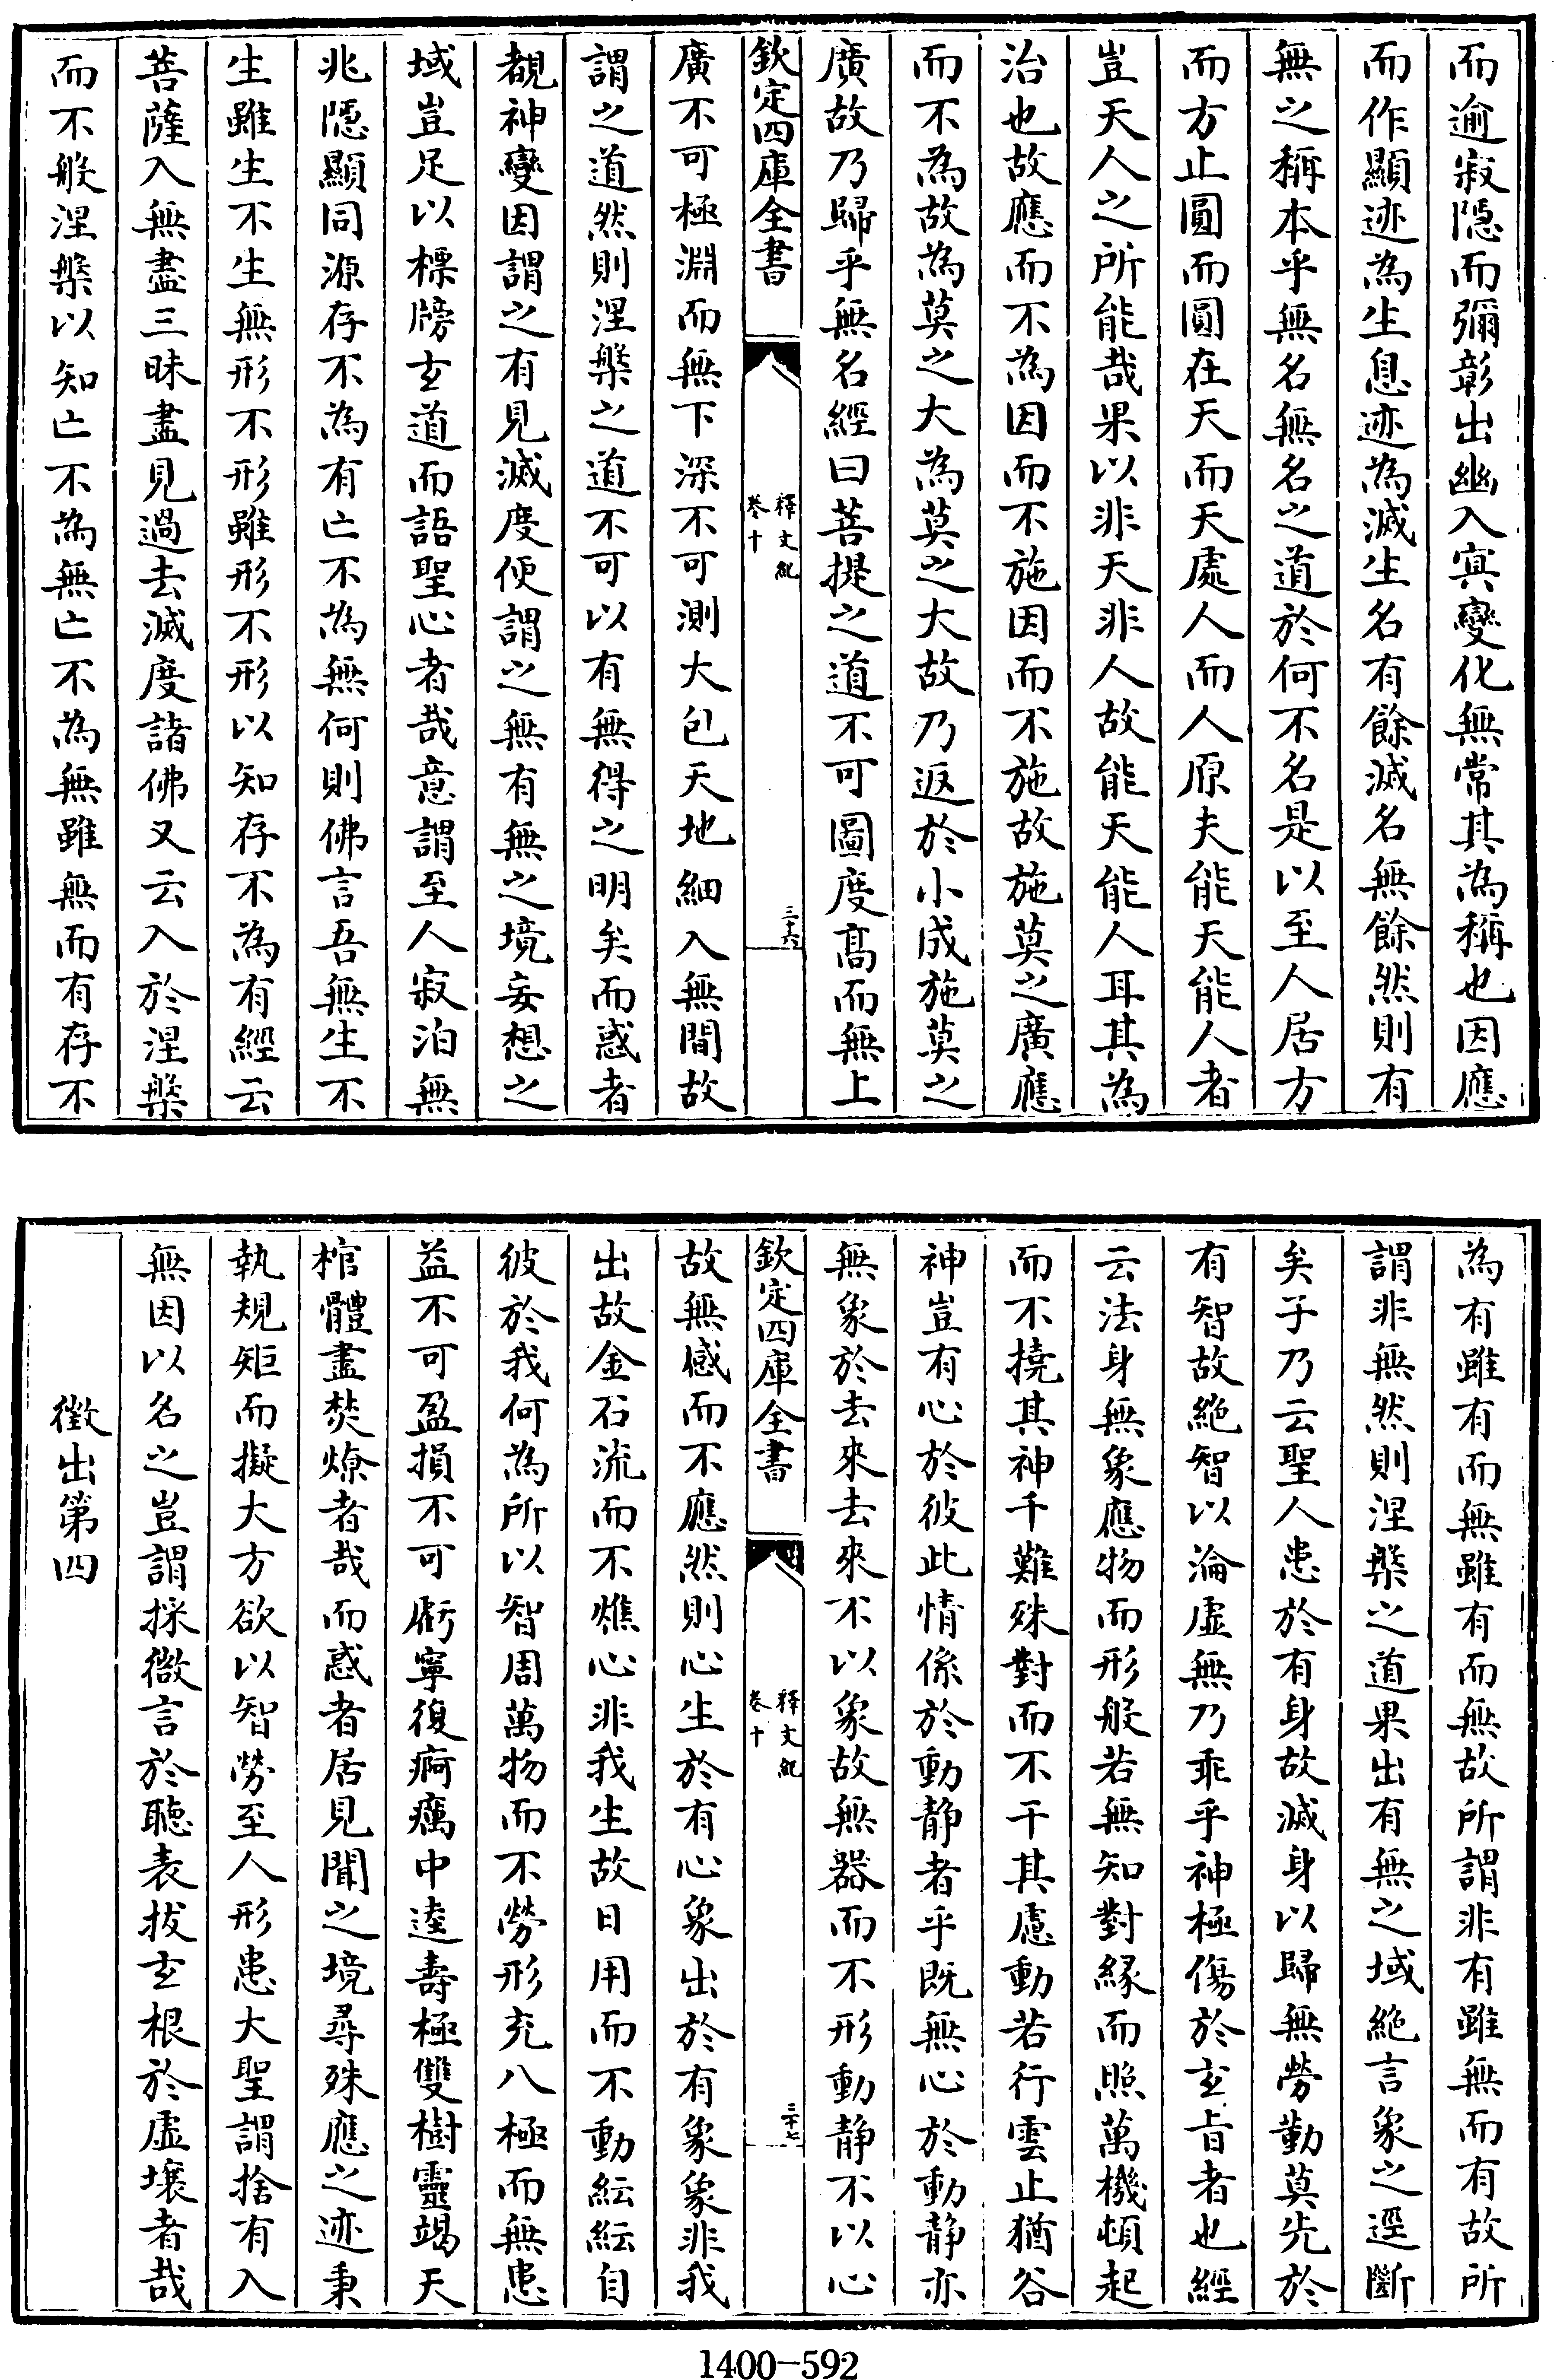 而逾寂隱而彌彰出幽入冥變化無常其為稱也因應
而作顯迹為生息迹為滅生名有餘滅名無餘然則有
無之稱本乎無名無名之道於何不名是以至人居方
而方止圓而圓在天而天處人而人原夫能天能人者
豈天人之所能哉果以非天非人故能天能人耳其為
治也故應而不為因而不施因而不施故施莫之廣應
而不為故為莫之大為莫之大故乃返於小成施莫之
廣故乃歸乎無名經曰菩提之道不可圖度高而無上
欽定四庫全書
釋文紀
卷十
三十六
廣不可極淵而無下深不可測大包天地細入無間故
謂之道然則涅槃之道不可以有無得之明矣而惑者
覩神變因謂之有見滅度便謂之無有無之境妄想之
域豈足以標牓玄道而語聖心者哉意謂至人寂泊無
兆隱顯同源存不為有亡不為無何則佛言吾無生不
生雖生不生無形不形雖形不形以知存不為有經云
菩薩入無盡三昧盡見過去滅度諸佛又云入於涅槃
而不般涅槃以知亡不為無亡不為無雖無而有存不
為有雖有而無雖有而無故所謂非有雖無而有故所
謂非無然則涅槃之道果出有無之域絕言象之逕斷
矣子乃云聖人患於有身故滅身以歸無勞勤莫先於
有智故絕智以淪虛無乃乖乎神極傷於玄旨者也經
云法身無象應物而形般若無知對緣而照萬機頓起
而不撓其神千難殊對而不干其慮動若行雲止猶谷
神豈有心於彼此情係於動靜者乎既無心於動靜亦
無象於去來去來不以象故無器而不形動靜不以心
欽定四庫全書
釋文紀
卷十
三十七
故無感而不應然則心生於有心象出於有象象非我
出故金石流而不燋心非我生故日用而不動紜紜自
彼於我何為所以智周萬物而不勞形充八極而無患
益不可盈損不可虧寧復痾癘中逵壽極雙樹靈竭天
棺體盡焚燎者哉而惑者居見聞之境尋殊應之迹秉
執規矩而擬大方欲以智勞至人形患大聖謂捨有入
無因以名之豈謂採微言於聽表拔玄根於虛壤者哉
徵出第四
1400-592